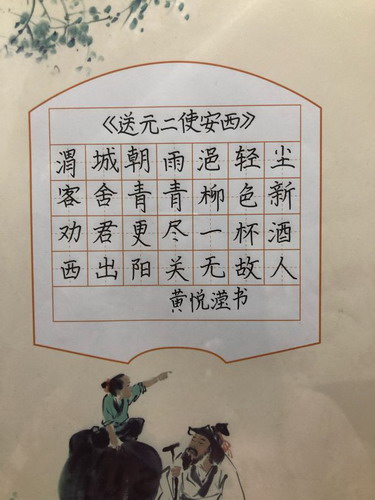 《送元二使安西》
渭城朝雨浥轻尘
客舍青青柳色新
劝君更尽一杯酒
西出阳关无故人
黄悦滢书